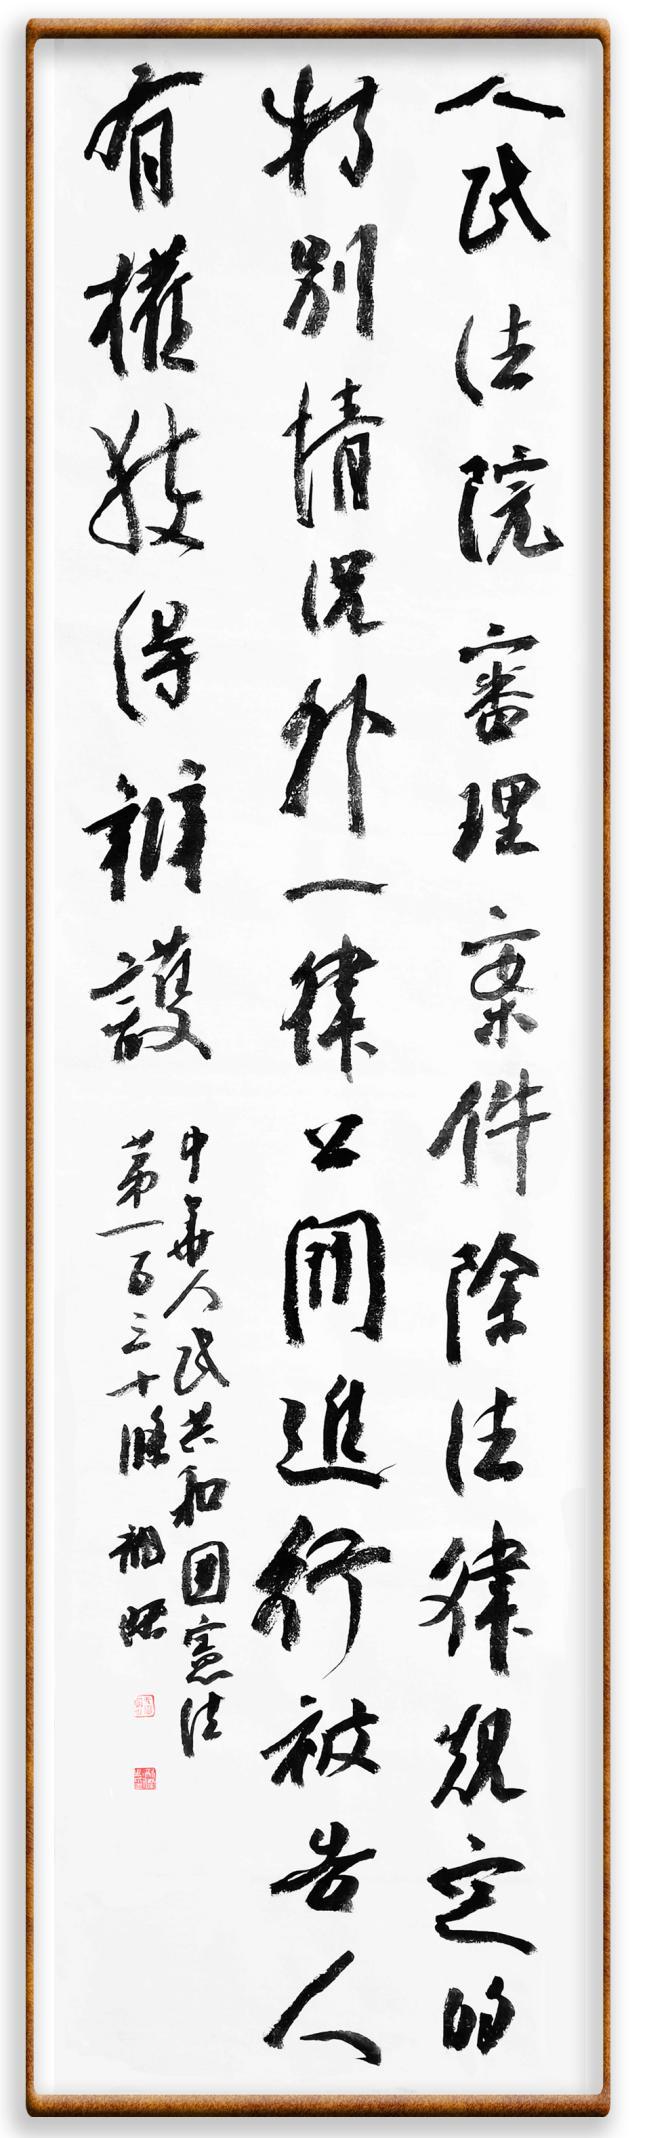 人民法院審理案件除法律規定的
特別情况外一律公開進行被告人
有權獲得辯護
中華人民共和国憲法
第一百三十條